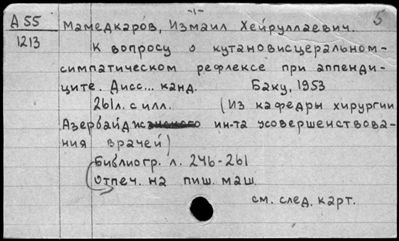 -1-
5
А 55
1213
Мамедкаров, Измаил Хейруллаевич.
К вопросу о кутановисцеральном-
симпатическом рефлексе при аппенди-
ците. Дисс... канд. Баку, 1953
261л. с илл. (Из кафедры хирургии
Азербайдж. ин-та усовершенствова-
ния врачей)
Библиогр. л. 246-261
Отпеч. на пиш. маш.
см. след. карт.